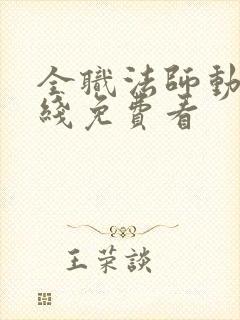 全職法師動
綫免費看
王荣談